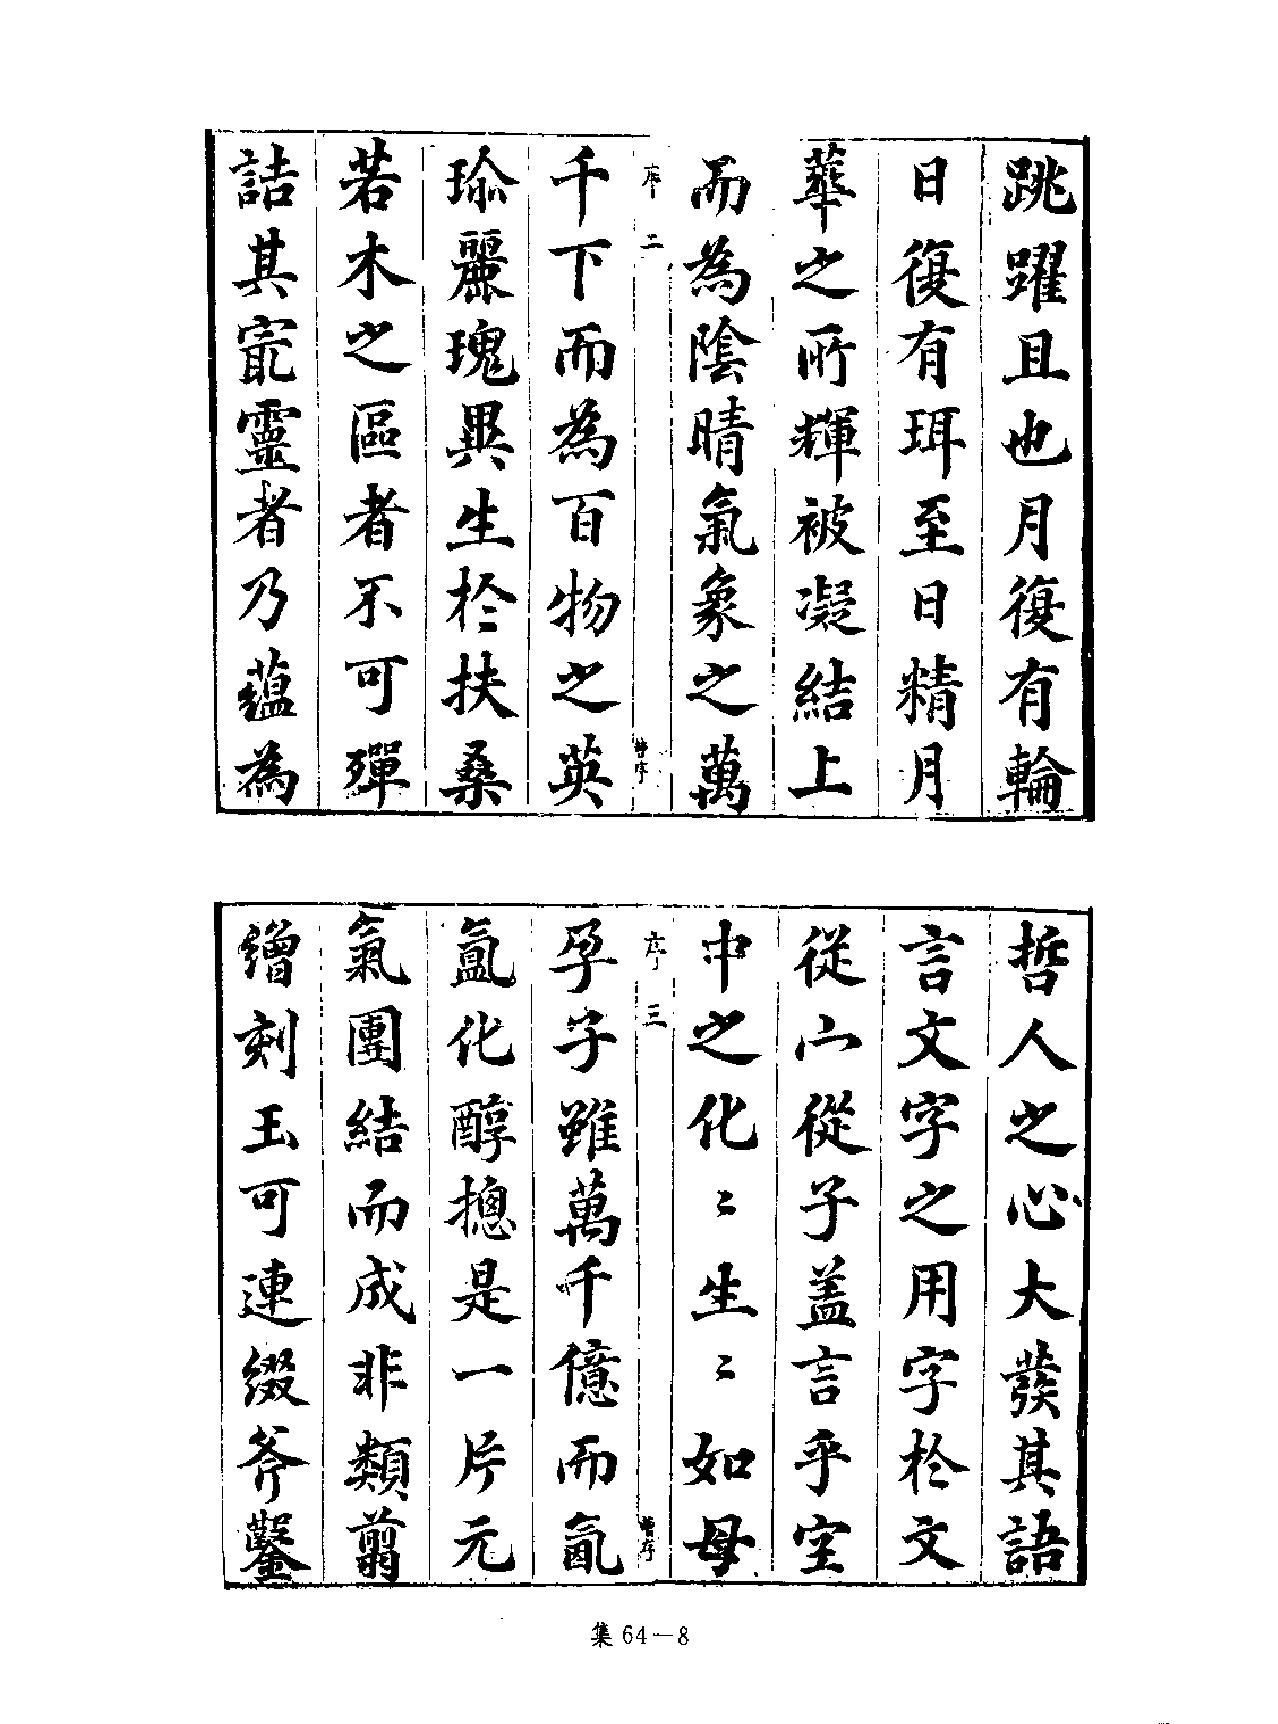 跳躍且也月復有輪
日復有珥至日精月
華之所輝被凝結上
而為陰晴氣象之萬
序 二
曾序
千下而為百物之英
瑜麗瑰異生於扶桑
若木之區者不可殫
詰其寔靈者乃蘊為
哲人之心大發其語
言文字之用字於文
從宀從子蓋言乎空
中之化〻生〻如母
序 三
曾序
孕字雖萬千億而氤
氳化醇摠是一片元
氣團結而成非類翦
繒刻玉可連綴斧鑿
集 64—8